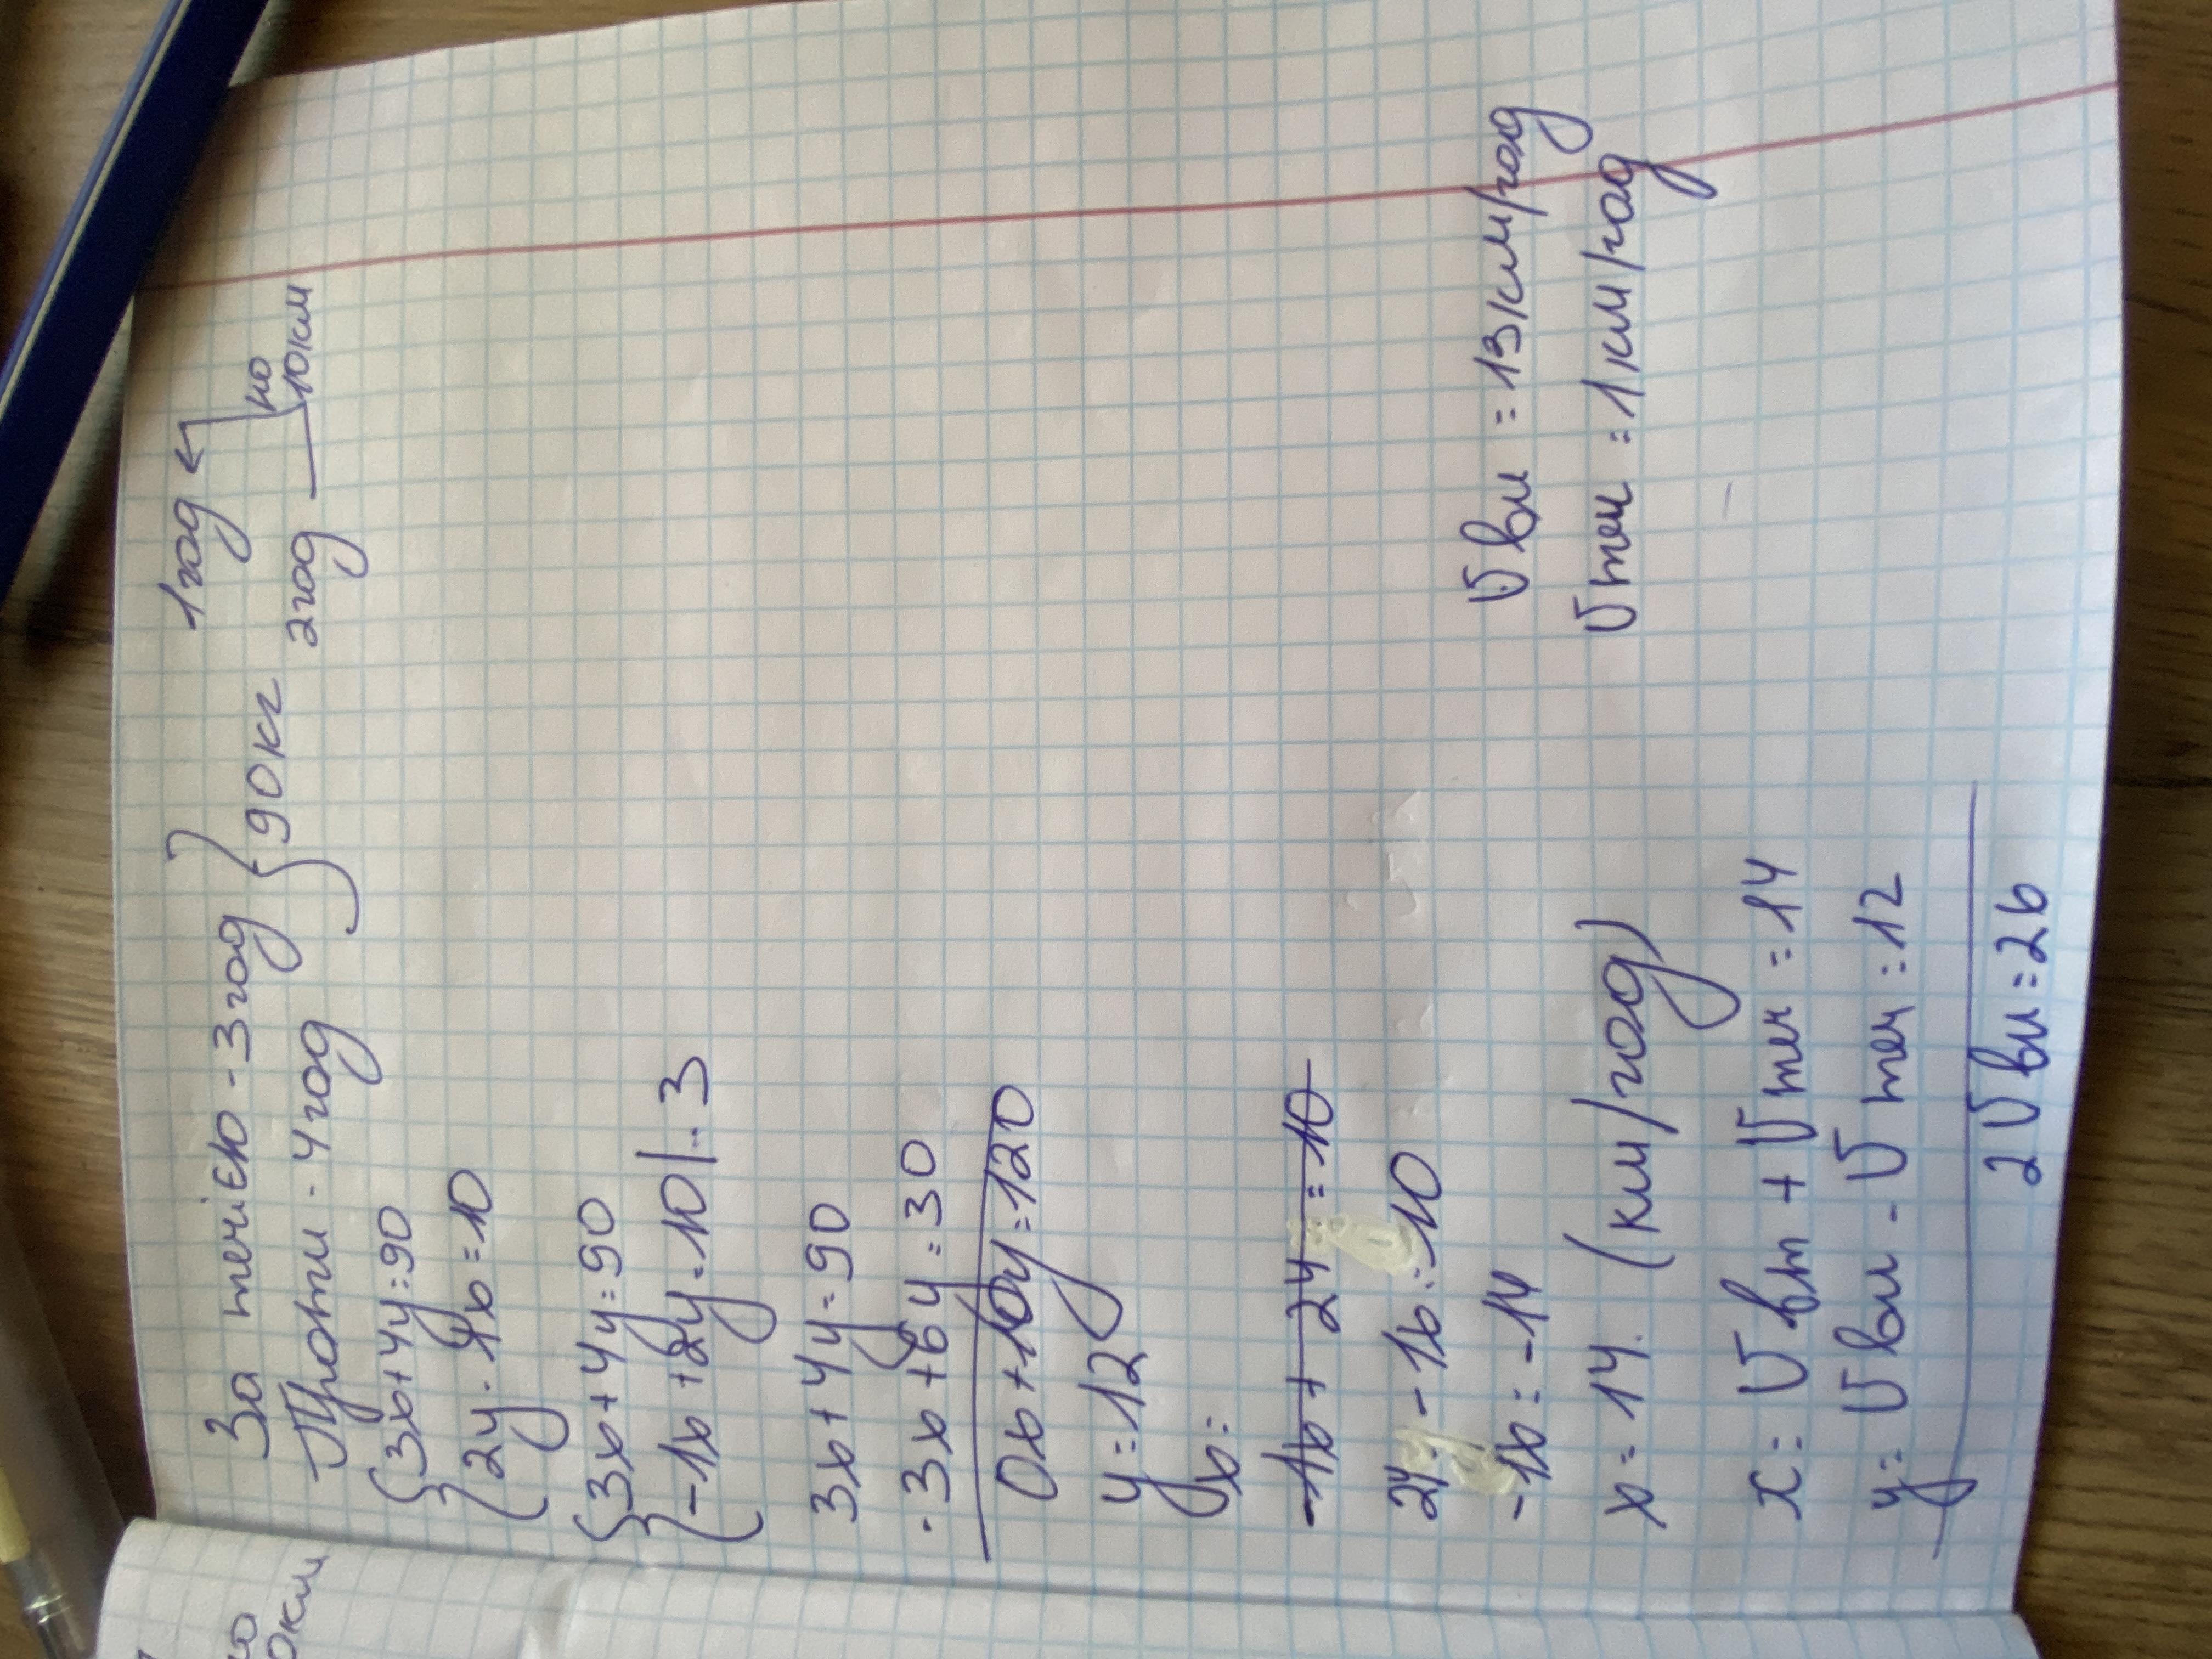 За течією - 3 год } 90 кг 1 год ←
Проти - 4 год 2 год — на 10 км
{ 3x+4y=90
{ 2y - 1x = 10
{ 3x+4y=90
{ -1x+2y=10 |· 3
3x+4y=90
-3x+6y=30
0x+10y=120
y=12
x=
-1x + 24 = 10
24 - 1x = 10
-1x = -14
x = 14. (км/год)
x = Vвт + Vтеч = 14
y = Vвл - Vтеч = 12
2Vвл = 26
Vвл = 13 км/год
Vтеч = 1 км/год
но
0км